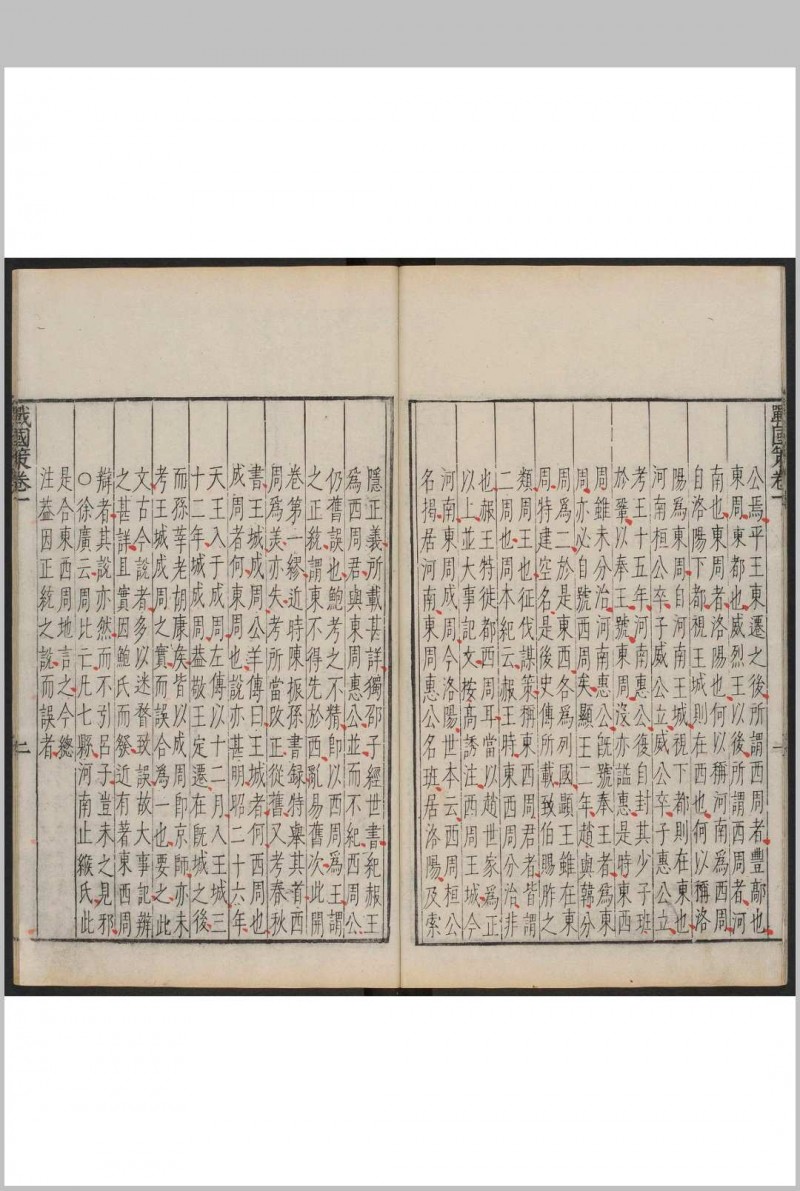 戰國策卷一
公焉平王東遷之後所謂西周者豐鄗也
東周東都也威烈王以後所謂西周者河
南也東周者洛陽也何以稱河南爲西周
自洛陽下都視王城則在西也何以稱洛
陽爲東周自河南王城視下都則在東也
河南桓公卒子威公立威公卒子惠公立
考王十五年河南惠公復自封其少子班
於鞏以奉王號東周沒亦謚惠是時東西
周雖未分治河南惠公旣號奉王者爲東
周亦必自號西周矣顯王二年趙與韓分
周爲二於是東西各爲列國顯王雖在東
周特建空名是後史傳所載致伯賜胙之
類周王也征伐謀策稱東西周君者皆謂
二周也周本紀云赧王時東西周分治非
也赧王特徙都西周耳當以趙世家爲正
以上並大事記文按高誘注西周王城今
河南東周成周今洛陽世本云西周桓公
名揭居河南東周惠公名班居洛陽及索
一
隱正義所載甚詳獨邵子經世書紀赧王
爲西周君與東周惠公並而不紀西周公
仍舊誤也鮑考之不精卽以西周爲王謂
之正統謂東不得先於西亂易舊次此開
卷第一繆近時陳振孫書録特舉其首西
周爲美亦失考所當改正從舊又考春秋
書王城成周公羊傳曰王城者何西周也
成周者何東周也說亦甚明昭二十六年
天王入于成周左傳以十二月入王城三
十二年城成周葢敬王定遷在旣城之後
而孫莘老胡康矦皆以成周卽京師亦未
考王城成周之實而誤合爲一也要之此
文古今說者多以迷瞀致誤故大事記辨
之甚詳且實因鮑氏而發近有著東西周
辯者其說亦然而不引呂子豈未之見邪
○徐廣云周比亡凡七縣河南止緱氏此
是合東西周地言之今總
注葢因正統之說而誤者
戰國策卷一
二